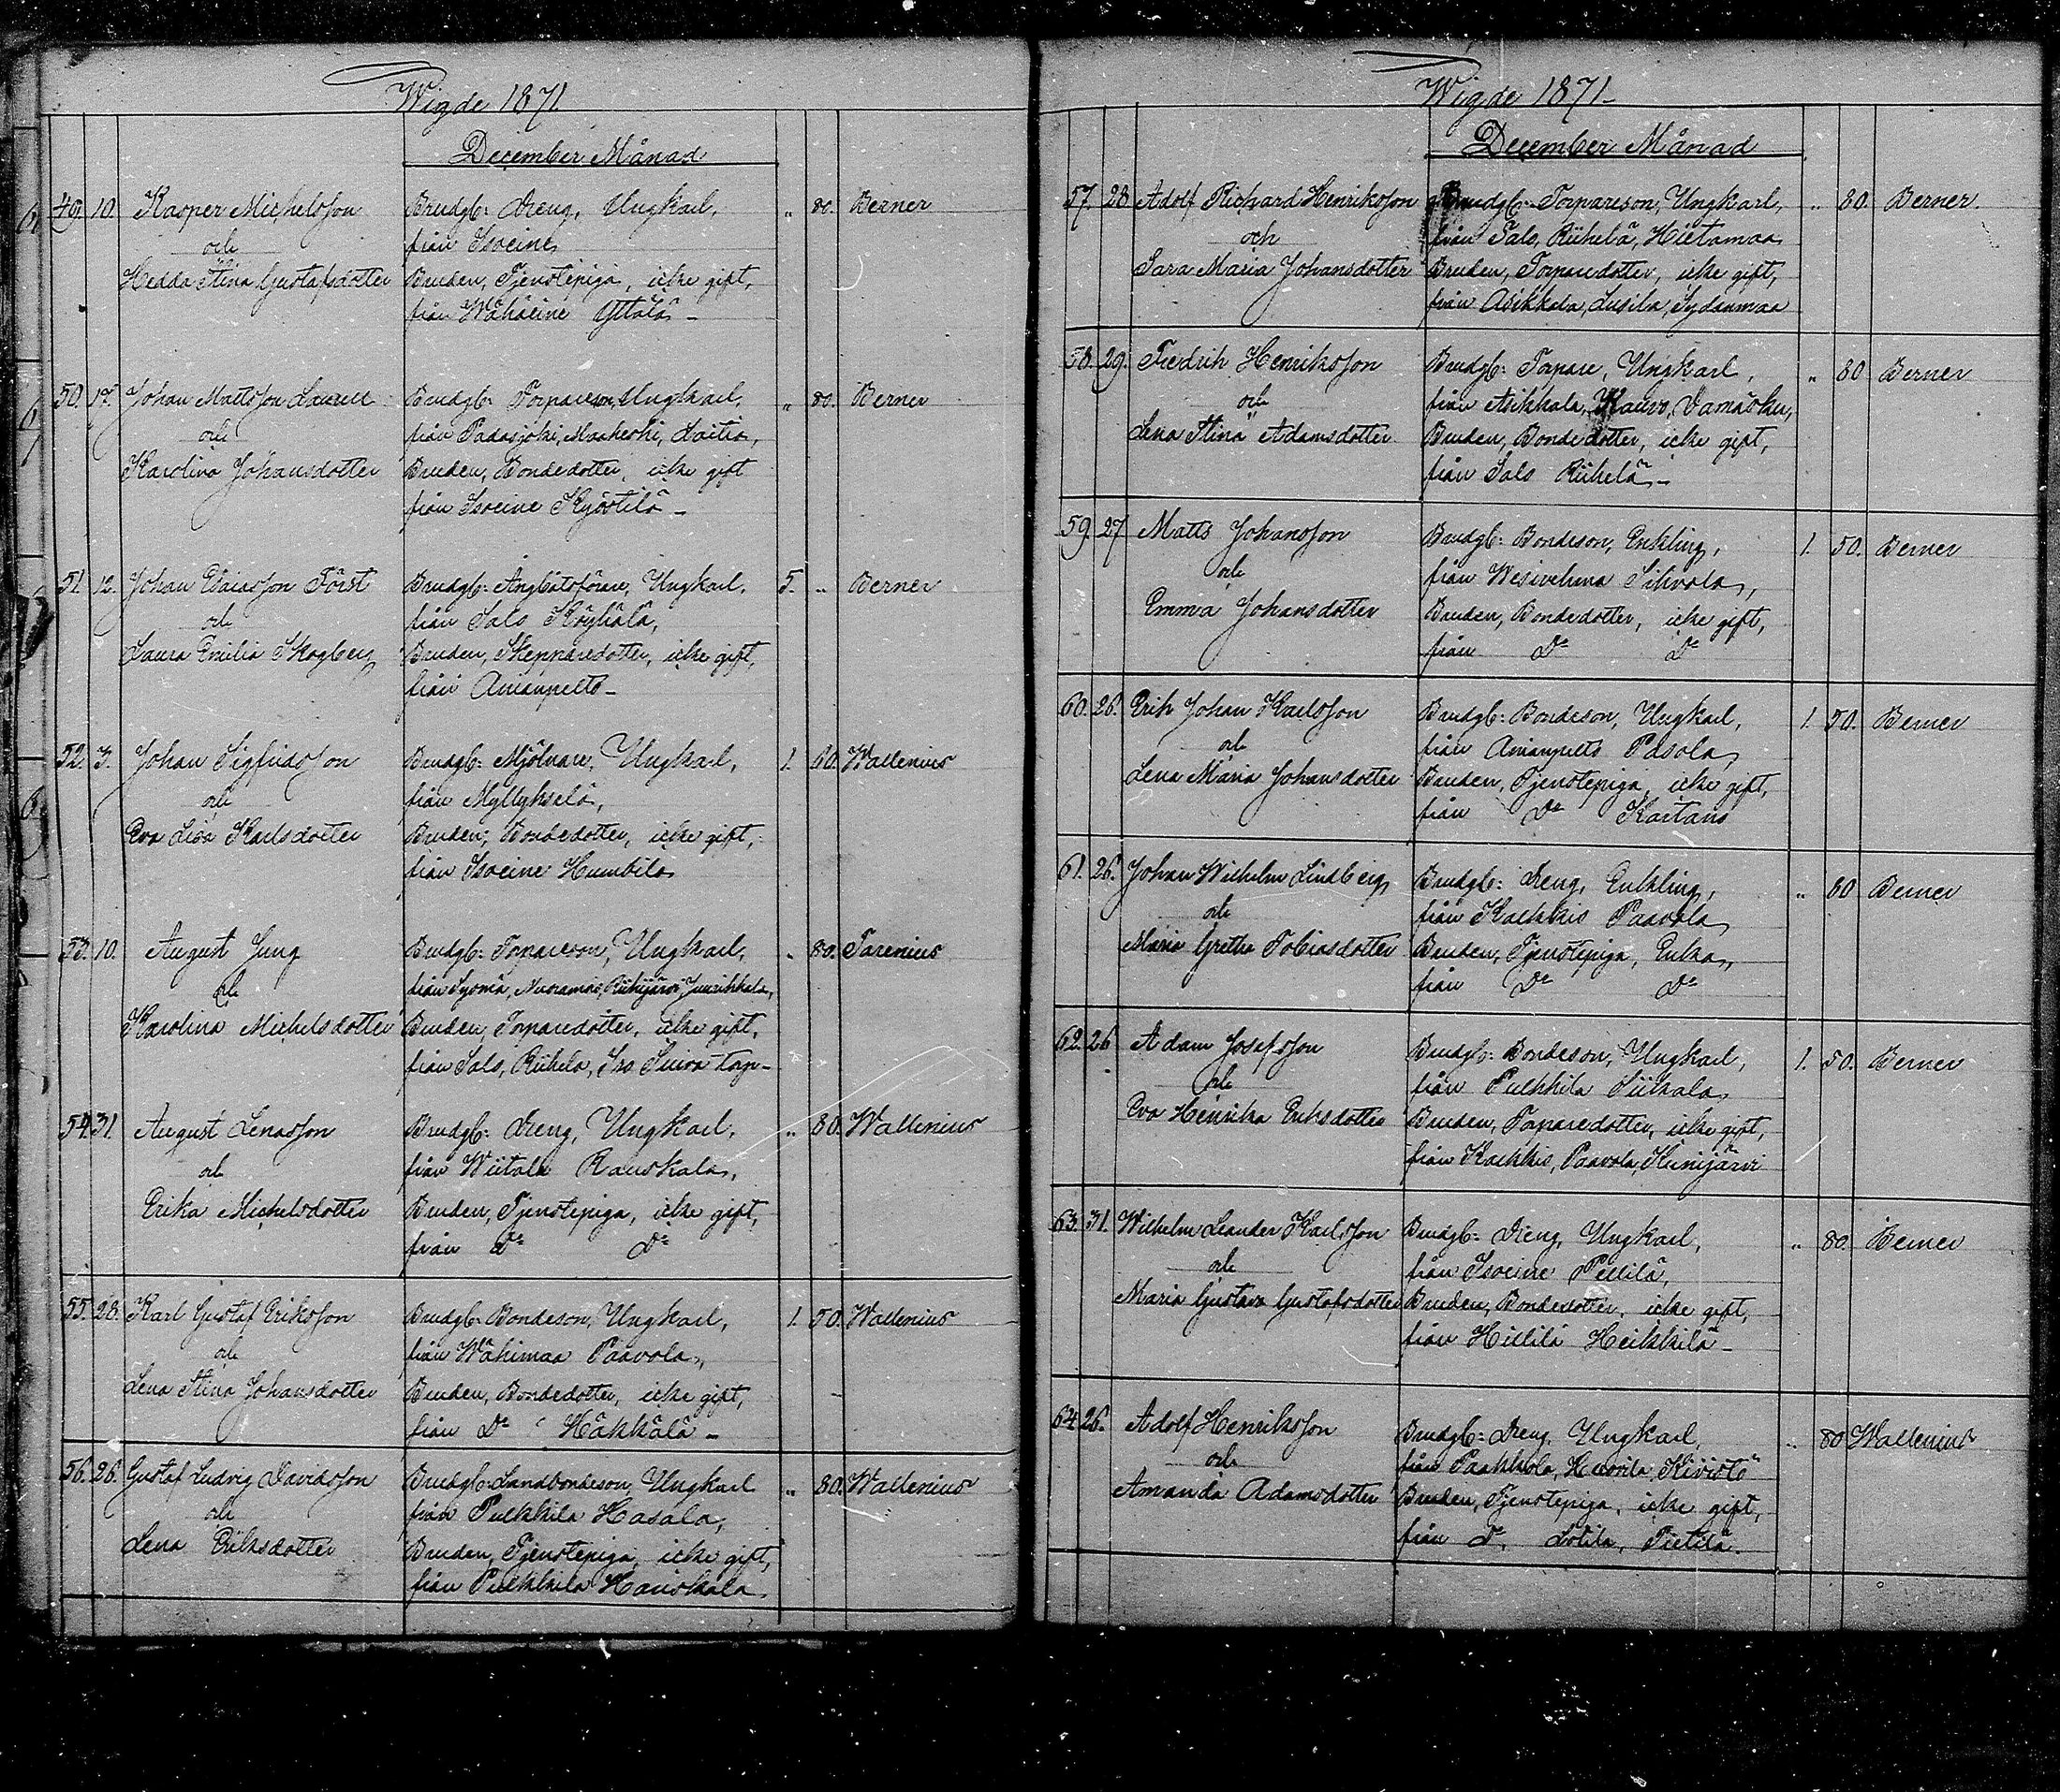 Wigde 1871
December Månad
49. 10. Kasper Michelsson Brudg: Dreng, Ungkarl, „ 80. Berner
och från Isoeine
Hedda Stina Gustafsdotter Bruden, Tjenstepiga, icke gift,
från Wähäeine Yttälä –
50. 17. Johan Mattsson Laurell Brudg: Torpareson, Ungkarl, „ 80. Berner
och från Padasjoki, Maakeski, Laitia,
Karolina Johansdotter Bruden, Bondedotter, icke gift
från Isoeine Kyöstilä –
51. 12. Johan Esaiasson Först Brudg: Ångbåtsförare, Ungkarl, 5. „ Berner
och från Salo Köyhälä,
Laura Emilia Skogberg Bruden, Skepparedotter, icke gift,
från Anianpelto –
52. 3. Johan Sigfridsson Brudg: Mjölnare, Ungkarl, 1. 60. Wallenius
och från Myllykselä,
Eva Lisa Karlsdotter Bruden, Bondedotter, icke gift,
från Isoeine Humbila
53. 10. August Jung Brudg: Torpareson, Ungkarl, „ 80. Sarenius
och från Sysmä, Nuoramois, Juurikkala,
Karolina Michelsdotter Bruden, Torparedotter, icke gift,
från Salo, Riihelä, Iso torp –
54. 31. August Lenasson Brudg: Dreng, Ungkarl, „ 80. Wallenius
och från Wiitala Rauskala,
Erika Michelsdotter Bruden, Tjenstepiga, icke gift,
från Do Do
55. 28. Karl Gustaf Eriksson Brudg: Bondeson, Ungkarl, 1. 50. Wallenius
och från Wähimaa Paavola,
Lena Stina Johansdotter Bruden, Bondedotter, icke gift,
från Do Häkkälä –
56. 26. Gustaf Ludvig Davidsson Brudg: Landbondeson, Ungkarl „ 80. Wallenius
och från Pulkkila Hasala,
Lena Eriksdotter Bruden, Tjenstepiga, icke gift,
från Pulkkila Hauskala
Wigde 1871 –
December Månad
57. 28 Adolf Richard Henriksson Brudg: Torpareson, Ungkarl, „ 80. Berner.
och från Salo, Riihelä, Hietamaa
Sara Maria Johansdotter Bruden, Torparedotter, icke gift,
från Asikkala, Lusila, Sydanmaa
58. 29. Fredrik Henriksson Brudg: Torpare, Ungkarl, „ 80 Berner
och från Asikkala, Vamäsku,
Lena Stina Adamsdotter Bruden, Bondedotter, icke gift,
från Salo Riihelä –
59. 27 Matts Johansson Brudg: Bondeson, Enkling, 1. 50. Berner
och från Wesivehma Sihvola,
Emma Johansdotter Bruden, Bondedotter, icke gift,
från Do Do
60. 26. Erik Johan Karlsson Brudg: Bondeson, Ungkarl, 1. 50. Berner
och från Anianpelto Pasola,
Lena Maria Johansdotter Bruden, Tjenstepiga, icke gift,
från Do Kartano
61. 26. Johan Wilhelm Lindberg Brudg: Dreng, Enkling, „ 80 Berner
och från Kalkkis Paavola
Maria Gretha Tobiasdotter Bruden, Tjenstepiga, Enka,
från Do Do
62. 26 Adam Josefsson Brudg: Bondeson, Ungkarl, 1. 50. Berner
och från Pulkkila Siikala
Eva Henrika Eriksdotter Bruden, Torparedotter, icke gift,
från Kalkkis, Paavola,
63. 31. Wilhelm Leander Karlsson Brudg: Dreng, Ungkarl, „ 80. Berner
och från Isoeine Pellilä,
Maria Gustava Gustafsdotter Bruden, Bondedotter, icke gift,
från Hillilä Heikkilä –
64 26. Adolf Henriksson Brudg: Dreng, Ungkarl, „ 80 Wallenius
och från Paakkola, Kivistö
Amanda Adamsdotter Bruden, Tjenstepiga, icke gift,
från Do. Lotila, Pietilä.